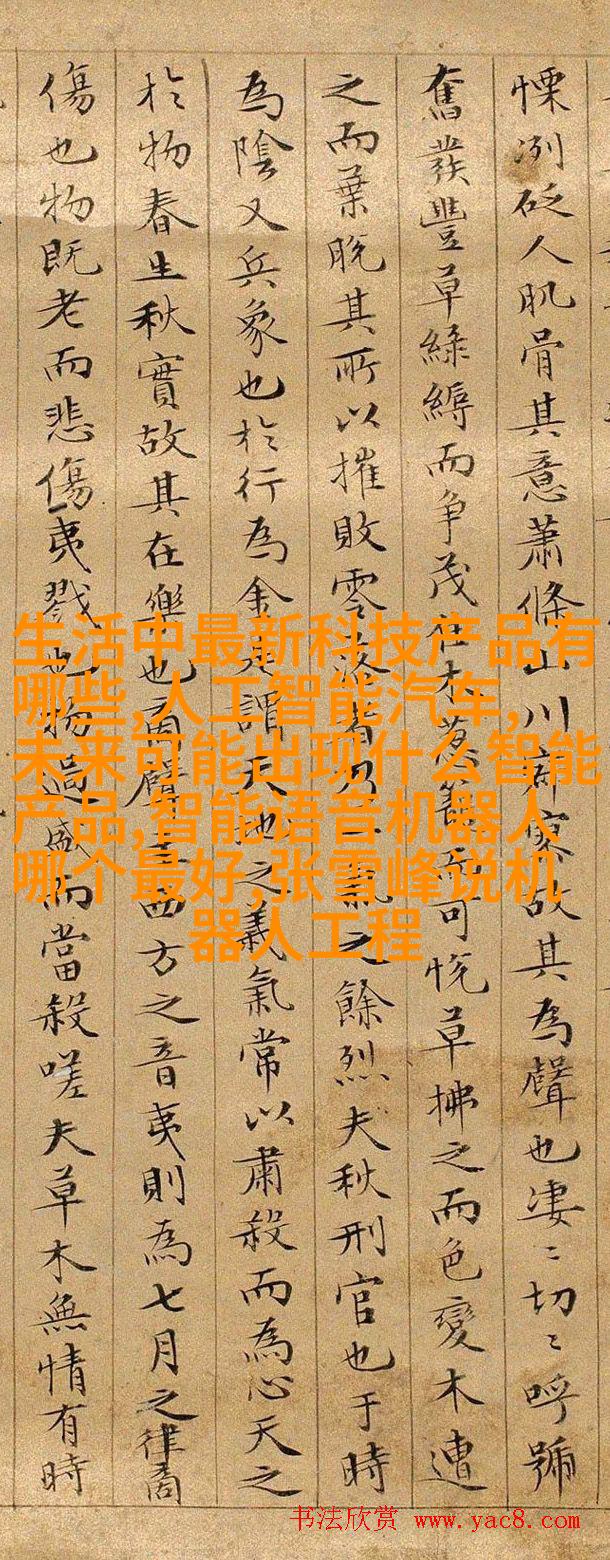 慄冽砭人肌骨其意蕭條山川寂寥故其為聲也淒〻切〻呼號
奮發豐草綠縟而爭茂佳木蔥籠而可悅草拂之而色變木遭
之而葉脫其所以摧敗零落者乃一氣之餘烈夫秋刑官也于時
為陰又兵象也於行為金是謂天地之義氣常以肅殺而為心天之
於物春生秋實故其在樂也商聲主西方之音夷則為七月之律商
傷也物既老而悲傷夷戮也物過盛而當殺嗟夫草木無情有時
生活中最新科技产品有
哪些,人工智能汽车,
未来可能出现什么智能
产品,智能语音机器人
哪个最好,张雪峰说机
器人工程
书法欣赏 www.yac8.com